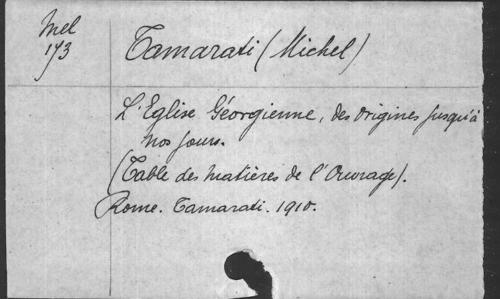 Mel
173
Tamarati (Michel)
L'Eglise Géorgienne, des origines jusqu'à
nos jours.
(Table des matières de l'Ouvrage).
Rome. Tamarati. 1910.